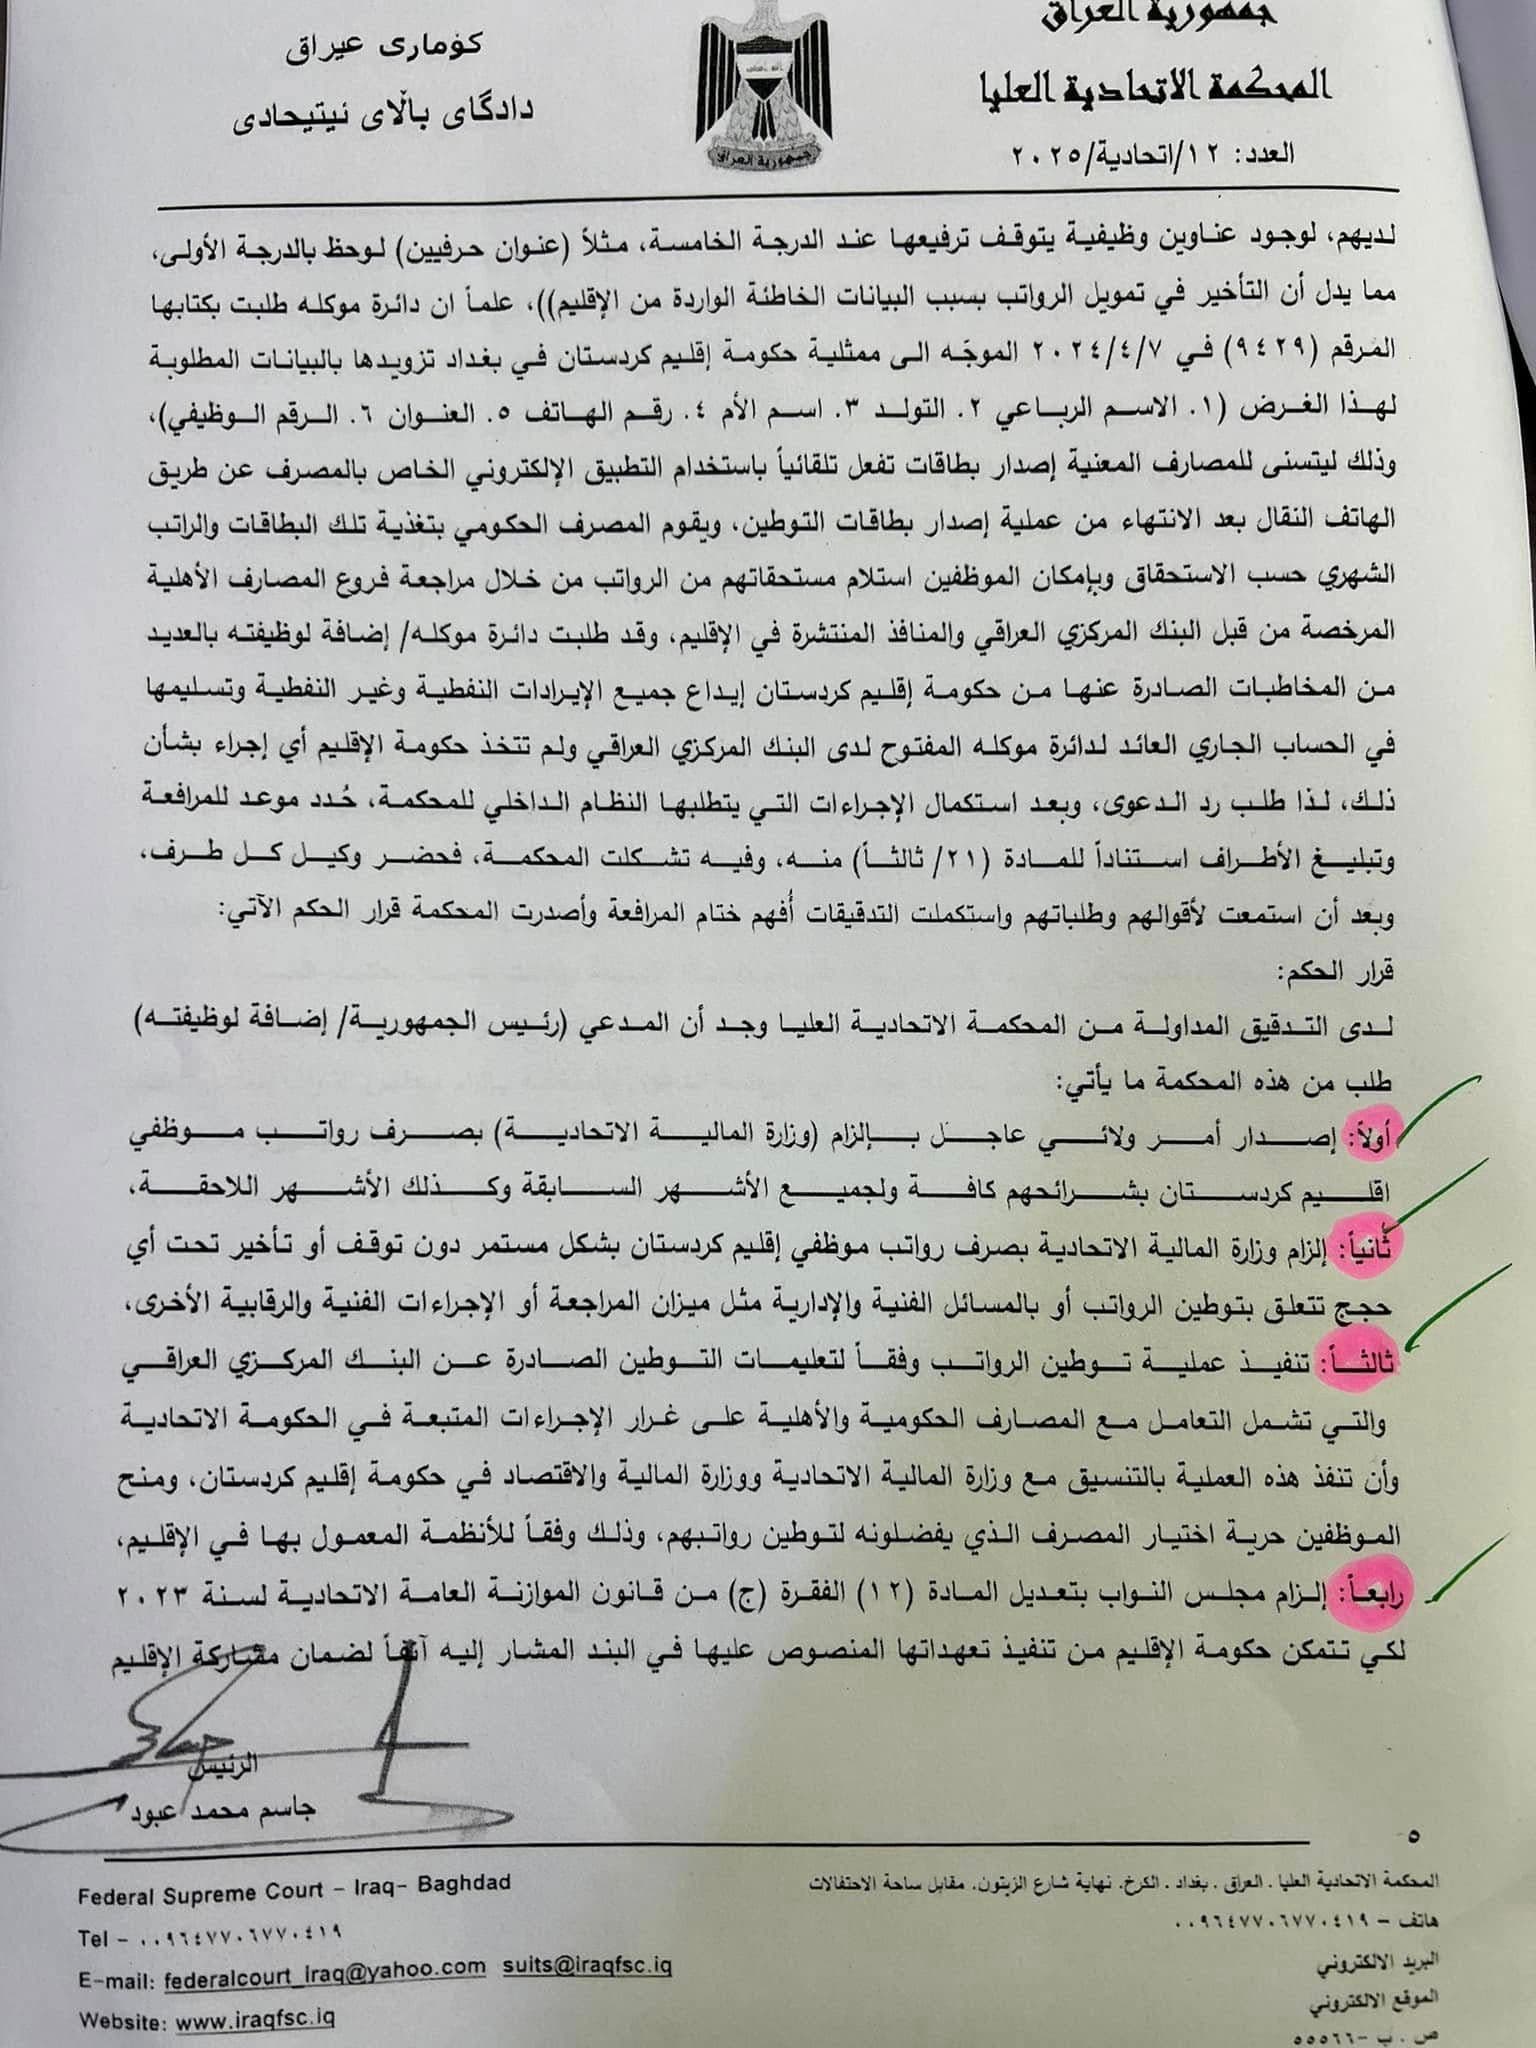 جمهورية العراق
المحكمة الاتحادية العليا
العدد: ١٢/اتحادية/٢٠٢٥
كۆماری عیراق
دادگای باڵای ئیتیحادی
جمهورية العراق
لديهم، لوجود عناوين وظيفية يتوقف ترفيعها عند الدرجة الخامسة، مثلاً (عنوان حرفيين) لوحظ بالدرجة الأولى،
مما يدل أن التأخير في تمويل الرواتب بسبب البيانات الخاطئة الواردة من الإقليم))، علماً ان دائرة موكله طلبت بكتابها
المرقم (٩٤٢٩) في ٢٠٢٤/٤/٧ الموجّه الى ممثلية حكومة إقليم كردستان في بغداد تزويدها بالبيانات المطلوبة
لهذا الغرض (١. الاسم الرباعي ٢. التولد ٣. اسم الأم ٤. رقم الهاتف ٥. العنوان ٦. الرقم الوظيفي)،
وذلك ليتسنى للمصارف المعنية إصدار بطاقات تفعل تلقائياً باستخدام التطبيق الإلكتروني الخاص بالمصرف عن طريق
الهاتف النقال بعد الانتهاء من عملية إصدار بطاقات التوطين، ويقوم المصرف الحكومي بتغذية تلك البطاقات والراتب
الشهري حسب الاستحقاق وبإمكان الموظفين استلام مستحقاتهم من الرواتب من خلال مراجعة فروع المصارف الأهلية
المرخصة من قبل البنك المركزي العراقي والمنافذ المنتشرة في الإقليم، وقد طلبت دائرة موكله/ إضافة لوظيفته بالعديد
من المخاطبات الصادرة عنها من حكومة إقليم كردستان إيداع جميع الإيرادات النفطية وغير النفطية وتسليمها
في الحساب الجاري العائد لدائرة موكله المفتوح لدى البنك المركزي العراقي ولم تتخذ حكومة الإقليم أي إجراء بشأن
ذلك، لذا طلب رد الدعوى، وبعد استكمال الإجراءات التي يتطلبها النظام الداخلي للمحكمة، حُدد موعد للمرافعة
وتبليغ الأطراف استناداً للمادة (٢١/ ثالثاً) منه، وفيه تشكلت المحكمة، فحضر وكيل كل طرف،
وبعد أن استمعت لأقوالهم وطلباتهم واستكملت التدقيقات أُفهم ختام المرافعة وأصدرت المحكمة قرار الحكم الآتي:
قرار الحكم:
لدى التدقيق المداولة من المحكمة الاتحادية العليا وجد أن المدعي (رئيس الجمهورية/ إضافة لوظيفته)
طلب من هذه المحكمة ما يأتي:
أولاً: إصدار أمر ولائي عاجل بإلزام (وزارة المالية الاتحادية) بصرف رواتب موظفي
اقليم كردستان بشرائحهم كافة ولجميع الأشهر السابقة وكذلك الأشهر اللاحقة،
ثانياً: إلزام وزارة المالية الاتحادية بصرف رواتب موظفي إقليم كردستان بشكل مستمر دون توقف أو تأخير تحت أي
حجج تتعلق بتوطين الرواتب أو بالمسائل الفنية والإدارية مثل ميزان المراجعة أو الإجراءات الفنية والرقابية الأخرى،
ثالثاً: تنفيذ عملية توطين الرواتب وفقاً لتعليمات التوطين الصادرة عن البنك المركزي العراقي
والتي تشمل التعامل مع المصارف الحكومية والأهلية على غرار الإجراءات المتبعة في الحكومة الاتحادية
وأن تنفذ هذه العملية بالتنسيق مع وزارة المالية الاتحادية ووزارة المالية والاقتصاد في حكومة إقليم كردستان، ومنح
الموظفين حرية اختيار المصرف الذي يفضلونه لتوطين رواتبهم، وذلك وفقاً للأنظمة المعمول بها في الإقليم،
رابعاً: إلزام مجلس النواب بتعديل المادة (١٢) الفقرة (ج) من قانون الموازنة العامة الاتحادية لسنة ٢٠٢٣
لكي تتمكن حكومة الإقليم من تنفيذ تعهداتها المنصوص عليها في البند المشار إليه آنفاً لضمان مشاركة الإقليم
الرئيس
جاسم محمد عبود
٥
المحكمة الاتحادية العليا . العراق . بغداد . الكرخ. نهاية شارع الزيتون. مقابل ساحة الاحتفالات
هاتف – ٠٠٩٦٤٧٧٠٦٧٧٠٤١٩
البريد الالكتروني
الموقع الالكتروني
ص . ب –٥٥٥٦٦
Federal Supreme Court – Iraq– Baghdad
Tel – ٠٠٩٦٤٧٧٠٦٧٧٠٤١٩
E-mail: federalcourt_iraq@yahoo.com suits@iraqfsc.iq
Website: www.iraqfsc.iq